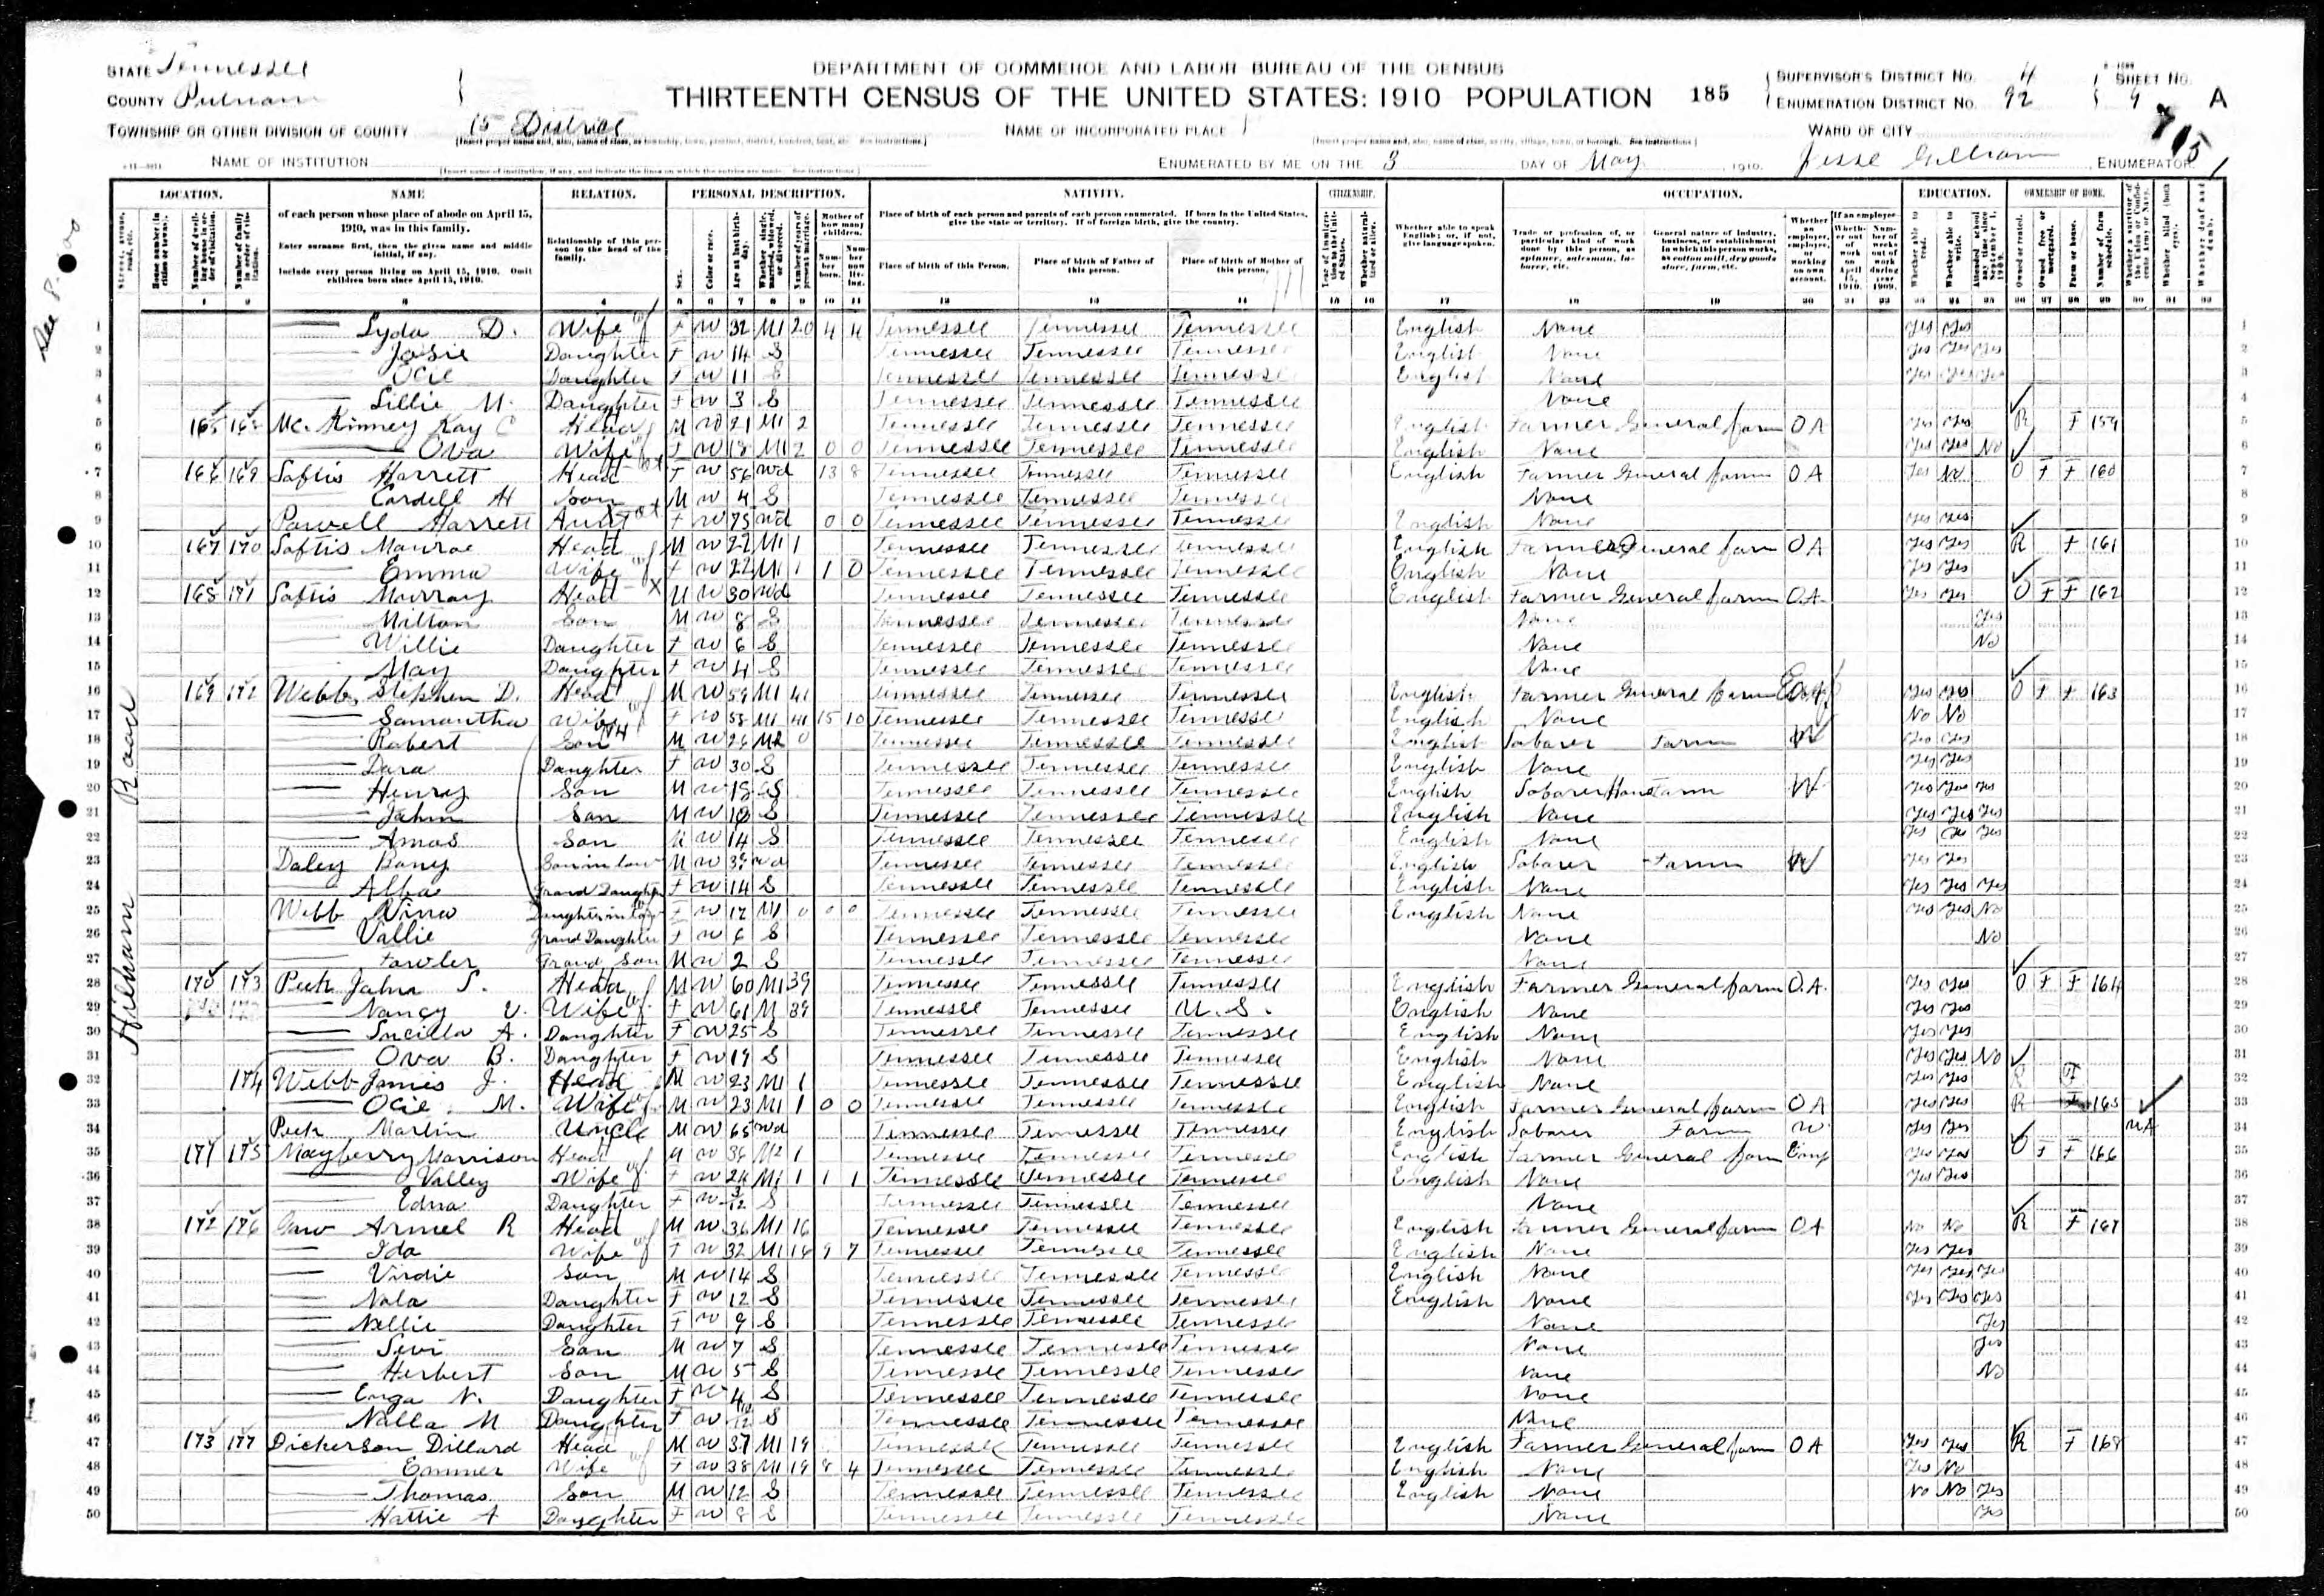 STATE Tennessee
COUNTY Putnam
DEPARTMENT OF COMMERCE AND LABOR BUREAU OF THE CENSUS
THIRTEENTH CENSUS OF THE UNITED STATES: 1910 POPULATION 185
SUPERVISOR'S DISTRICT No. 4 SHEET No.
ENUMERATION DISTRICT No. 92 9 A
TOWNSHIP OR OTHER DIVISION OF COUNTY 15 District NAME OF INCORPORATED PLACE WARD OF CITY
NAME OF INSTITUTION ENUMERATED BY ME ON THE 3 DAY OF May, 1910. Jesse Gilliam, ENUMERATOR
LOCATION. NAME RELATION. PERSONAL DESCRIPTION. NATIVITY. CITIZENSHIP. OCCUPATION. EDUCATION. OWNERSHIP OF HOME.
of each person whose place of abode on April 15, 1910, was in this family.
Enter surname first, then the given name and middle initial, if any.
Include every person living on April 15, 1910. Omit children born since April 15, 1910.
Relationship of this person to the head of the family.
Place of birth of each person and parents of each person enumerated. If born in the United States, give the state or territory. If of foreign birth, give the country.
Place of birth of this Person. Place of birth of Father of this person. Place of birth of Mother of this person.
Whether able to speak English; or, if not, give language spoken.
Hilham Road
1 Lyda D. Wife F W 32 M1 20 4 4 Tennessee Tennessee Tennessee English None Yes Yes
2 Josie Daughter F W 14 S Tennessee Tennessee Tennessee English None Yes Yes Yes
3 Ocie Daughter F W 11 S Tennessee Tennessee Tennessee English None Yes Yes Yes
4 Lillie M. Daughter F W 3 S Tennessee Tennessee Tennessee None
5 165 168 McKinney Kay C Head M W 21 M1 2 Tennessee Tennessee Tennessee English Farmer General farm OA Yes Yes R F 159
6 Ova Wife F W 18 M1 2 0 0 Tennessee Tennessee Tennessee English None Yes Yes No
7 166 169 Loftis Harrett Head F W 56 Wd 13 8 Tennessee Tennessee Tennessee English Farmer General farm OA Yes No O F F 160
8 Cordell H Son M W 4 S Tennessee Tennessee Tennessee None
9 Powell Harrett Aunt F W 75 Wd 0 0 Tennessee Tennessee Tennessee English None Yes Yes
10 167 170 Loftis Monroe Head M W 22 M1 1 Tennessee Tennessee Tennessee English Farmer General farm OA Yes Yes R F 161
11 Emma Wife F W 22 M1 1 1 0 Tennessee Tennessee Tennessee English None Yes Yes
12 168 171 Loftis Murray Head M W 30 Wd Tennessee Tennessee Tennessee English Farmer General farm OA Yes Yes O F F 162
13 Milton Son M W 8 S Tennessee Tennessee Tennessee None Yes
14 Willie Daughter F W 6 S Tennessee Tennessee Tennessee None No
15 May Daughter F W 4 S Tennessee Tennessee Tennessee None
16 169 172 Webb, Stephen D. Head M W 59 M1 41 Tennessee Tennessee Tennessee English Farmer General farm Yes Yes O F F 163
17 Samantha Wife F W 58 M1 41 15 10 Tennessee Tennessee Tennessee English None No No
18 Robert Son M W 26 M2 0 Tennessee Tennessee Tennessee English Laborer Farm W Yes Yes
19 Dora Daughter F W 30 S Tennessee Tennessee Tennessee English None Yes Yes
20 Henry Son M W 18 S Tennessee Tennessee Tennessee English Laborer Home Farm W Yes Yes Yes
21 John Son M W 16 S Tennessee Tennessee Tennessee English None Yes Yes Yes
22 Amos Son M W 14 S Tennessee Tennessee Tennessee English None Yes Yes Yes
23 Daley Son in law M W Wd Tennessee Tennessee Tennessee English Laborer Farm W Yes Yes
24 Alba Grand Daughter F W 14 S Tennessee Tennessee Tennessee English None Yes Yes Yes
25 Webb Vina Daughter in law F W 17 M1 0 0 0 Tennessee Tennessee Tennessee English None Yes Yes No
26 Vallie Grand Daughter F W 6 S Tennessee Tennessee Tennessee None No
27 Fowler Grand Son M W 2 S Tennessee Tennessee Tennessee None
28 170 173 Peek John S. Head M W 60 M1 39 Tennessee Tennessee Tennessee English Farmer General farm O.A. Yes Yes O F F 164
29 Nancy V. Wife F W 61 M 39 Tennessee Tennessee U.S. English None Yes Yes
30 Lucilla A. Daughter F W 25 S Tennessee Tennessee Tennessee English None Yes Yes
31 Ova B. Daughter F W 19 S Tennessee Tennessee Tennessee English None Yes Yes No
32 174 Webb James J. Head M W 23 M1 1 Tennessee Tennessee Tennessee English None Yes Yes
33 Ocie M. Wife M W 23 M1 1 0 0 Tennessee Tennessee Tennessee English Farmer General farm OA Yes Yes R F 165
34 Peek Martin Uncle M W 65 Wd Tennessee Tennessee Tennessee English Laborer Farm W Yes Yes UA
35 171 175 Mayberry Morrison Head M W 36 M2 1 Tennessee Tennessee Tennessee English Farmer General farm Emp Yes Yes O F F 166
36 Valley Wife F W 24 M1 1 1 1 Tennessee Tennessee Tennessee English None Yes Yes
37 Edna Daughter F W 3/12 S Tennessee Tennessee Tennessee None
38 172 176 Gaw Armel R Head M W 36 M1 16 Tennessee Tennessee Tennessee English Farmer General farm OA No No R F 167
39 Ida Wife F W 32 M1 16 9 7 Tennessee Tennessee Tennessee English None Yes Yes
40 Virdie Son M W 14 S Tennessee Tennessee Tennessee English None Yes Yes Yes
41 Nola Daughter F W 12 S Tennessee Tennessee Tennessee English None Yes Yes Yes
42 Nellie Daughter F W 9 S Tennessee Tennessee Tennessee None Yes
43 Levi Son M W 7 S Tennessee Tennessee Tennessee None Yes
44 Herbert Son M W 5 S Tennessee Tennessee Tennessee None No
45 N. Daughter F W 4 S Tennessee Tennessee Tennessee None
46 Nalla M Daughter F W S Tennessee Tennessee Tennessee None
47 173 177 Dickerson Dillard Head M W 37 M1 19 Tennessee Tennessee Tennessee English Farmer General farm OA Yes Yes R F 168
48 Emmer Wife F W 38 M1 19 8 4 Tennessee Tennessee Tennessee English None Yes No
49 Thomas Son M W 12 S Tennessee Tennessee Tennessee English None No No Yes
50 Hattie A Daughter F W 8 S Tennessee Tennessee Tennessee None Yes